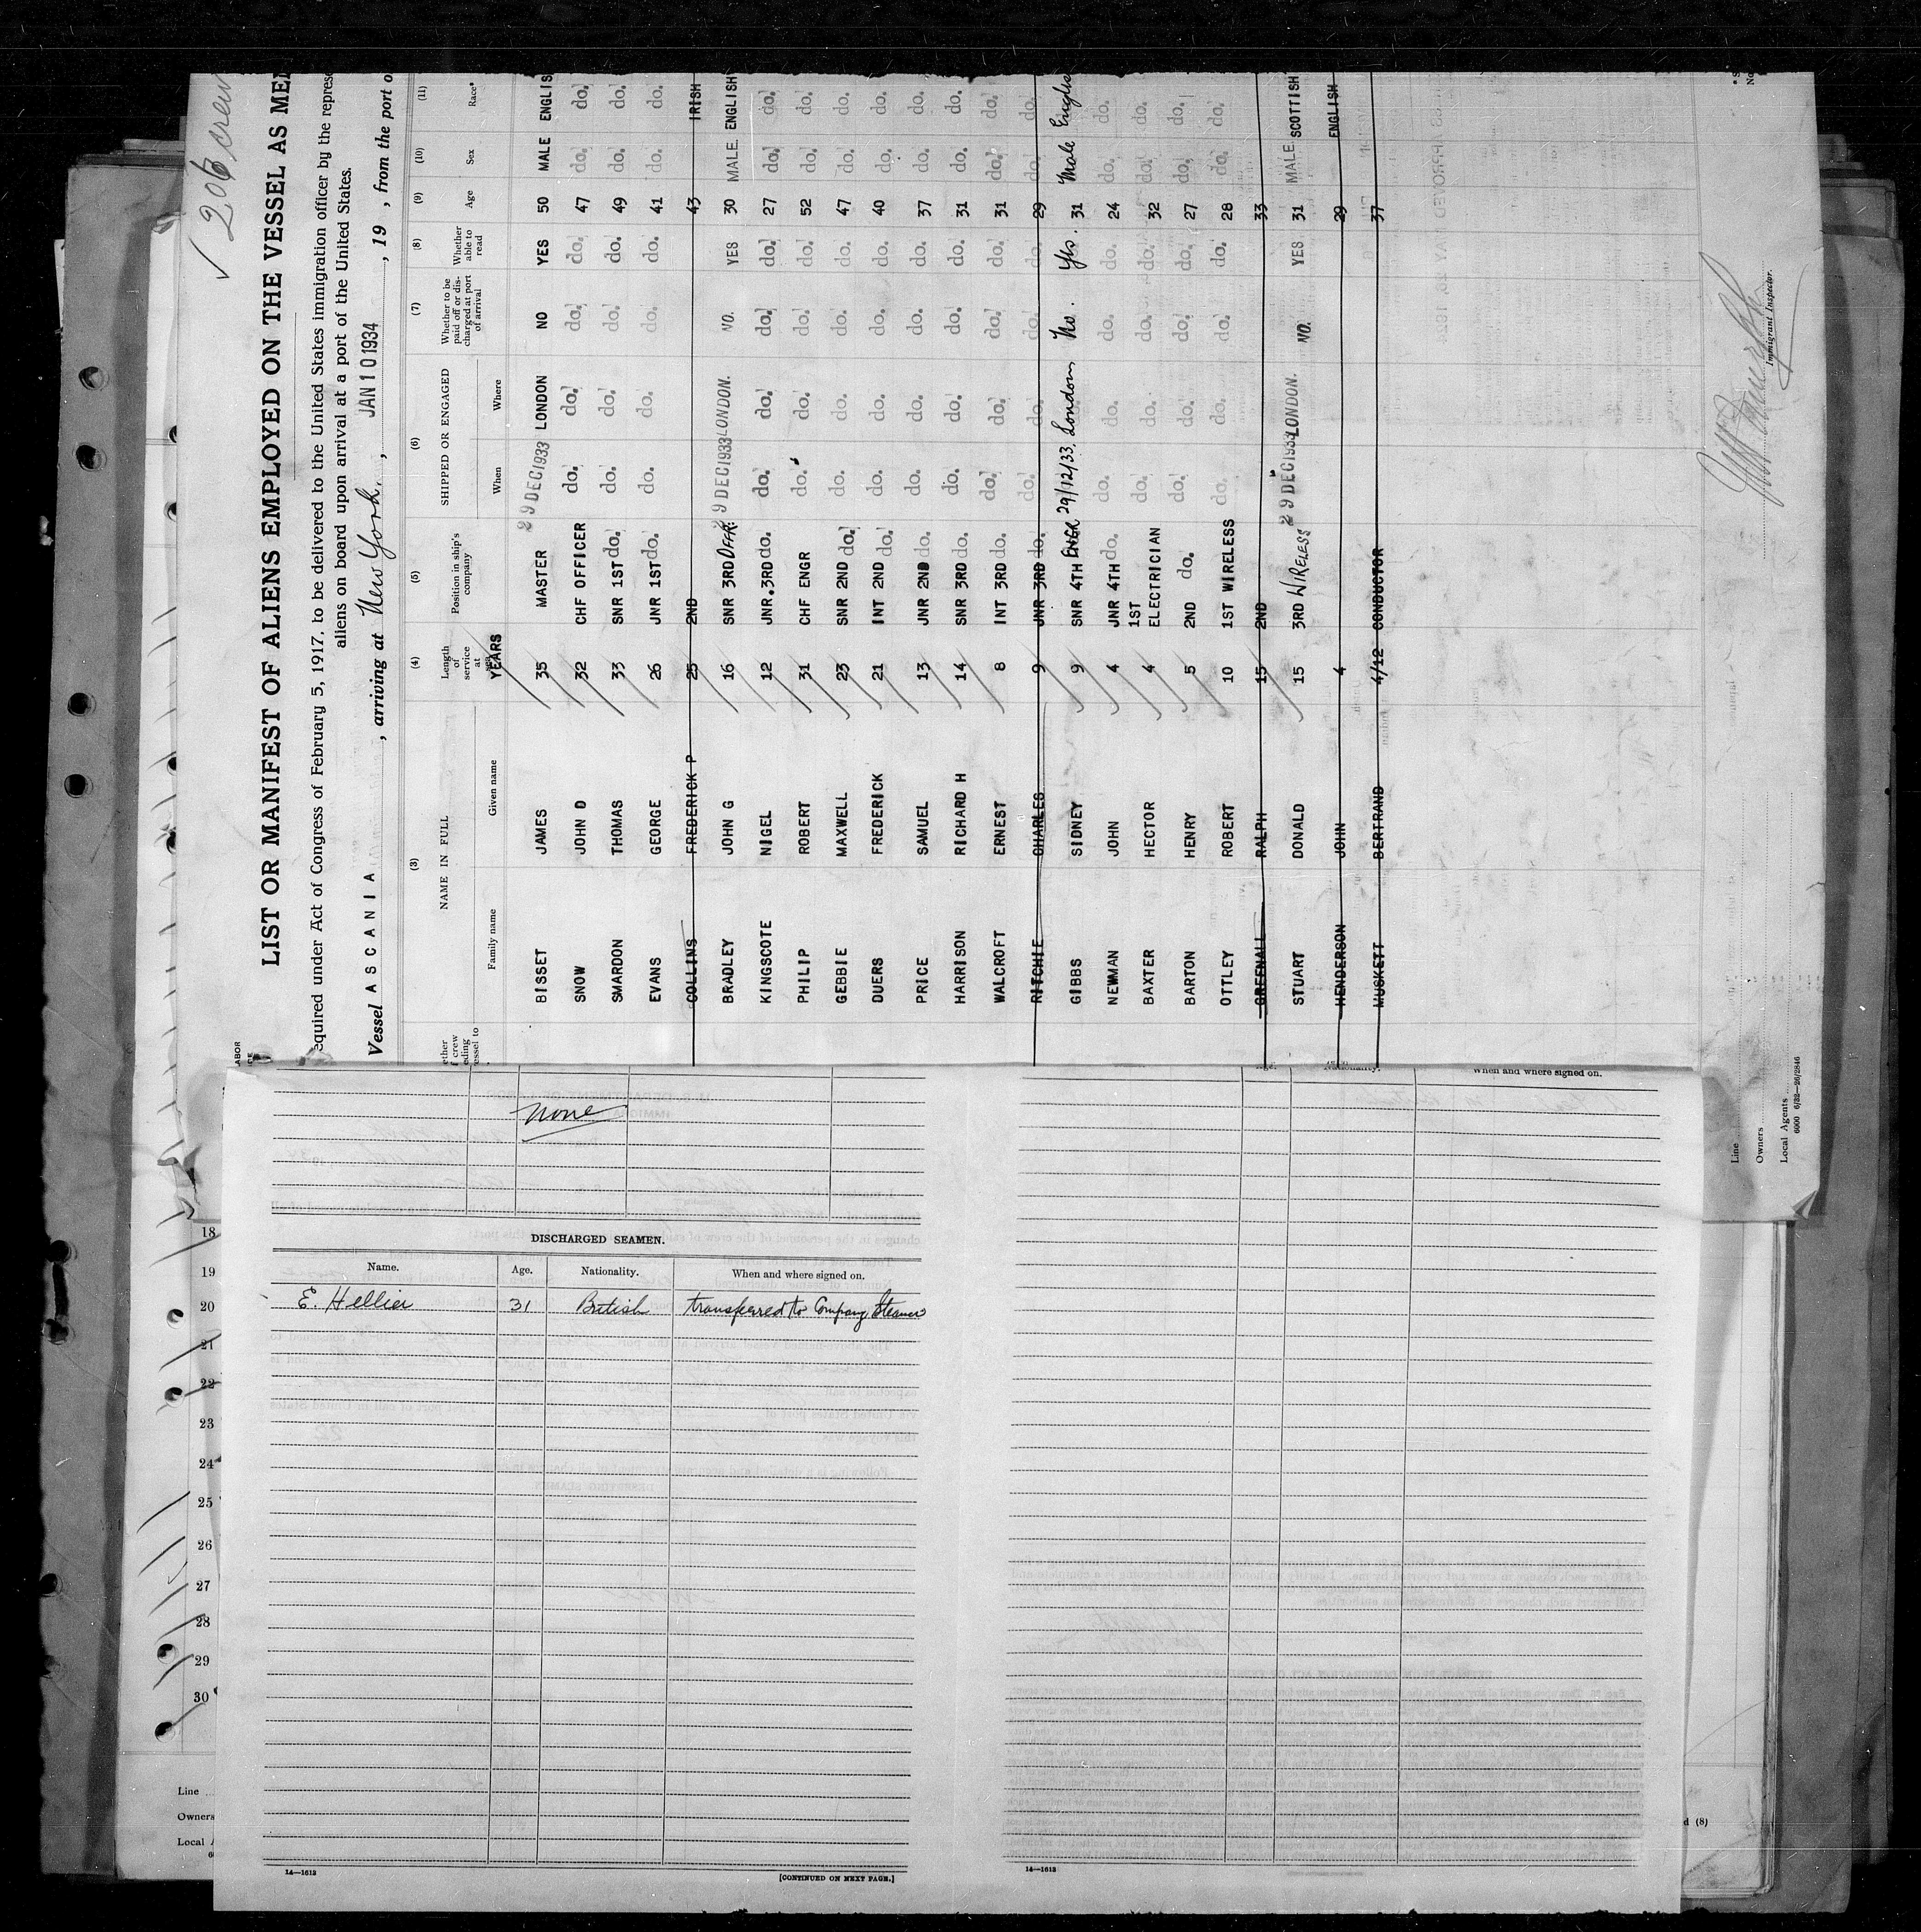 ✓ 206 crew
LIST OR MANIFEST OF ALIENS EMPLOYED ON THE VESSEL AS ME
equired under Act of Congress of February 5, 1917, to be delivered to the United States immigration officer by the represe
aliens on board upon arrival at a port of the United States.
Vessel ASCANIA, arriving at New York, JAN 10 1934, 19 , from the port o
(3) (4) (5) (6) (7) (8) (9) (10) (11)
NAME IN FULL Length of service at sea Position in ship's company SHIPPED OR ENGAGED Whether to be paid off or discharged at port of arrival Whether able to read Age Sex Race*
Family name Given name YEARS When Where
BISSET JAMES 35 MASTER 29 DEC 1933 LONDON NO YES 50 MALE ENGLIS
SNOW JOHN D 32 CHF OFFICER do. do. do. do. 47 do. do.
SMARDON THOMAS 33 SNR 1ST do. do. do. do. do. 49 do. do.
EVANS GEORGE 26 JNR 1ST do. do. do. do. do. 41 do. do.
COLLINS FREDERICK P 25 2ND 43 IRISH
BRADLEY JOHN G 16 SNR 3RD OFFR. 29 DEC 1933 LONDON. NO. YES 30 MALE. ENGLISH
KINGSCOTE NIGEL 12 JNR. 3RD do. do. do. do. do. 27 do. do.
PHILIP ROBERT 31 CHF ENGR do. do. do. do. 52 do. do.
GEBBIE MAXWELL 23 SNR 2ND do. do. do. do. do. 47 do. do.
DUERS FREDERICK 21 INT 2ND do. do. do. do. do. 40 do. do.
PRICE SAMUEL 13 JNR 2ND do. do. do. do. do. 37 do. do.
HARRISON RICHARD H 14 SNR 3RD do. do. do. do. do. 31 do. do.
WALCROFT ERNEST 8 INT 3RD do. do. do. do. do. 31 do. do.
RITCHIE CHARLES 9 JNR 3RD do. do. do. do. do. 29 do. do.
GIBBS SIDNEY 9 SNR 4TH ENGR 29/12/33. London No. Yes. 31 Male Englis
NEWMAN JOHN 4 JNR 4TH do. do. do. do. do. 24 do. do.
BAXTER HECTOR 4 1ST ELECTRICIAN do. do. do. do. 32 do. do.
BARTON HENRY 5 2ND do. do. do. do. do. 27 do. do.
OTTLEY ROBERT 10 1ST WIRELESS do. do. do. do. 28 do. do.
GREENALL RALPH 15 2ND 33
STUART DONALD 15 3RD WIRELESS 29 DEC 1933 LONDON. NO. YES 31 MALE. SCOTTISH
HENDERSON JOHN 4 29 ENGLISH
MUSKETT BERTRAND 4/12 CONDUCTOR 37
Immigrant Inspector.
Line
Owners
Local Agents
6000 6/32—26/2846
None
DISCHARGED SEAMEN.
Name. Age. Nationality. When and where signed on.
E. Hellier 31 British transferred to Company Steamer
14—1613
[CONTINUED ON NEXT PAGE.]
When and where signed on.
14—1613
18
19
20
21
22
23
24
25
26
27
28
29
30
Line
Owners
Local A
d (8)